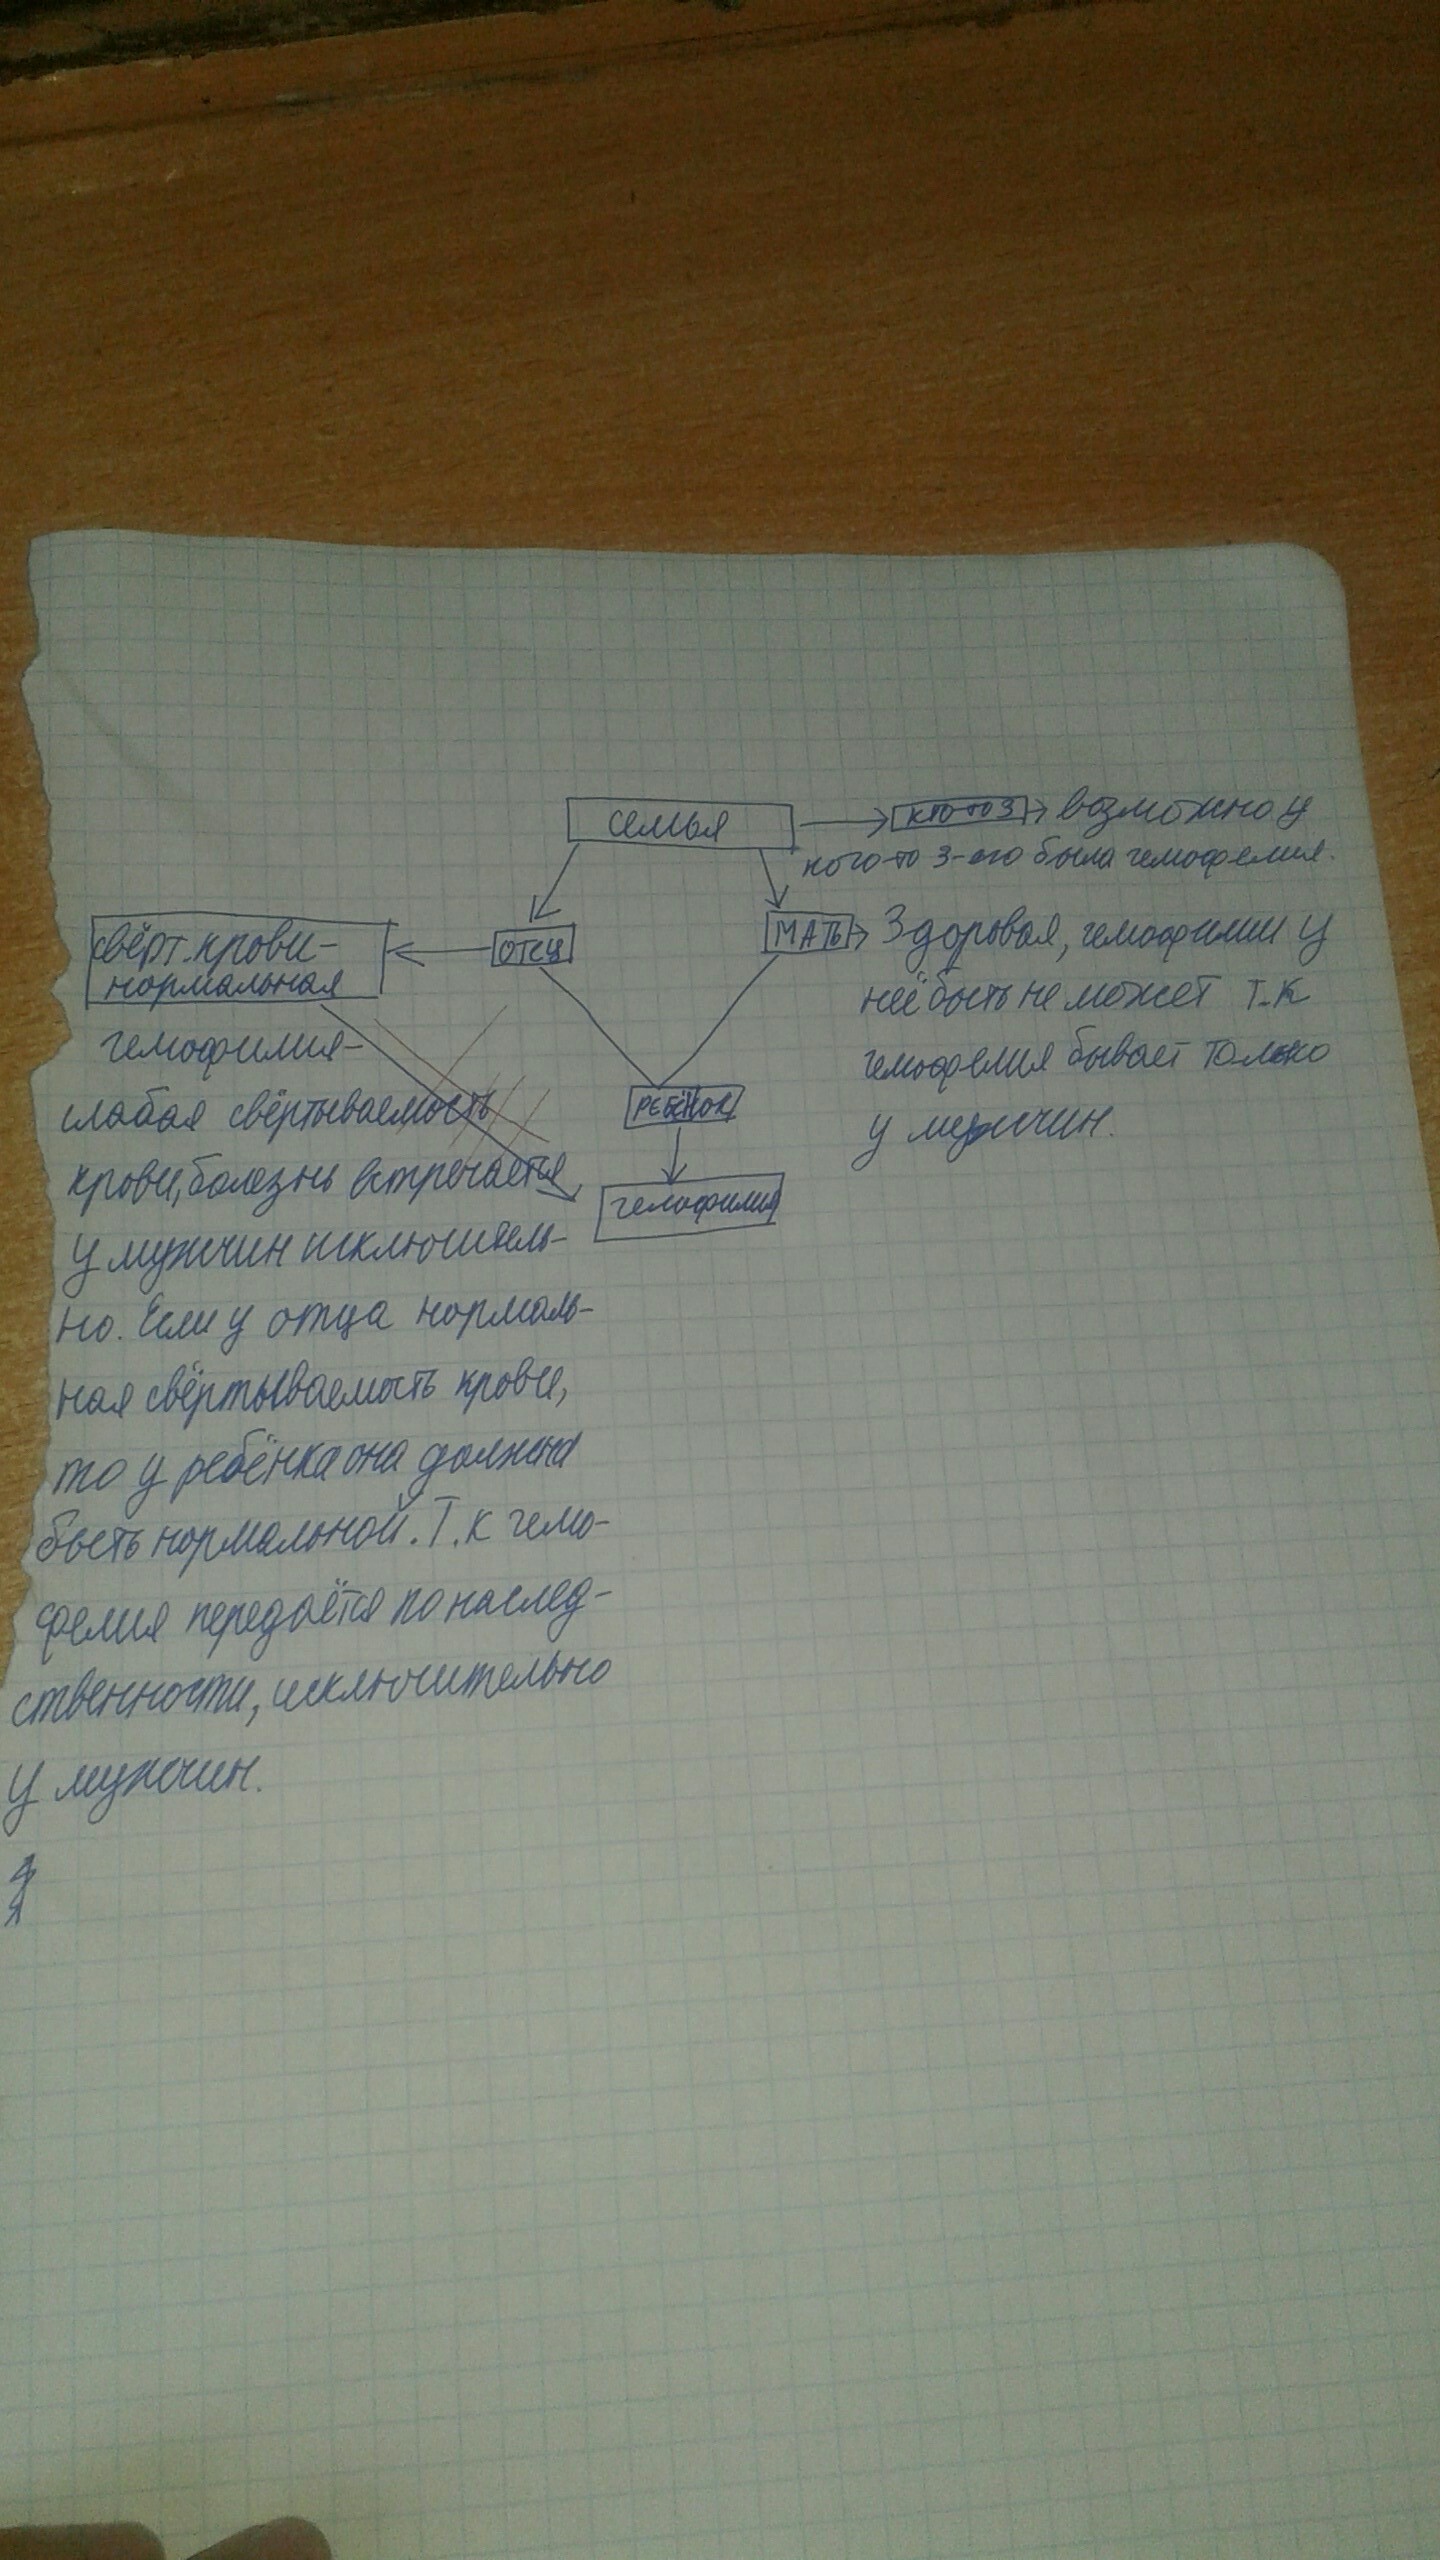 семья
кто то 3
возможно у
кого-то 3-его была гемофелия.
свёрт. крови-
нормальная
отец
МАТЬ
Здоровая, гемофилии у
неё быть не может т.к
гемофелия бывает только
у мужчин.
РЕБЁНОК
гемофилия
гемофилия-
слабая свёртываемость
крови, болезнь встречается
у мужчин исключитель-
но. Если у отца нормаль-
ная свёртываемость крови,
то у ребёнка она должна
быть нормальной. Т.к гемо-
фелия передаётся по наслед-
ственности, исключительно
у мужчин.